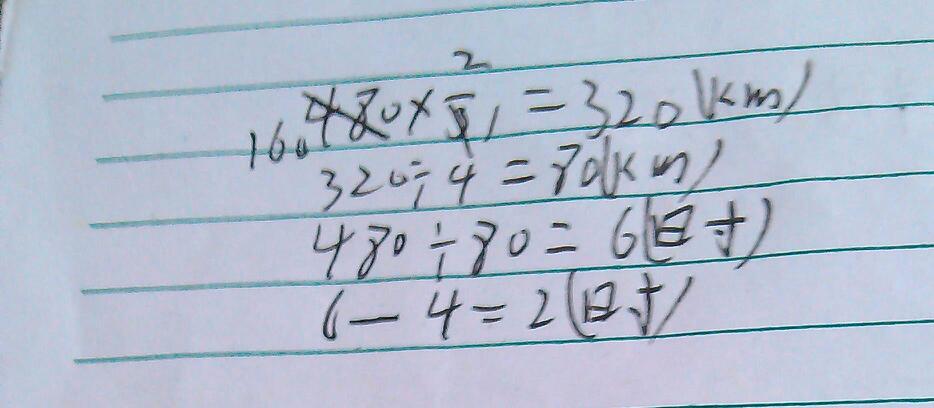 480×2/3=320(km)
160 1
320÷4=80(km)
480÷80=6(时)
6-4=2(时)